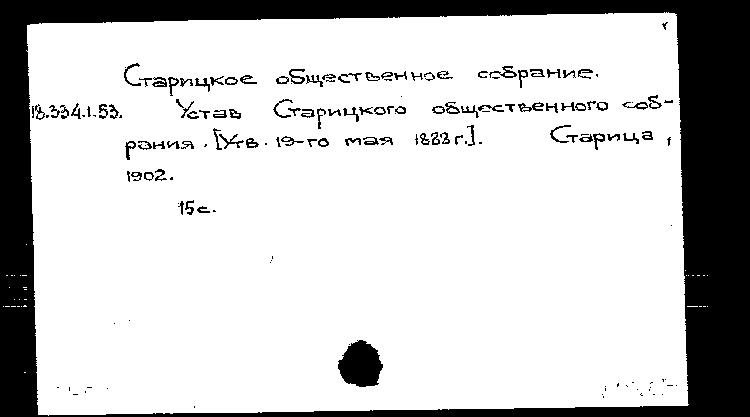 Старицкое общественное собрание.
18.334.1.53. Устав Старицкого общественного соб-
рания. [Утв. 19-го мая 1883 г.]. Старица,
1902.
15 с.